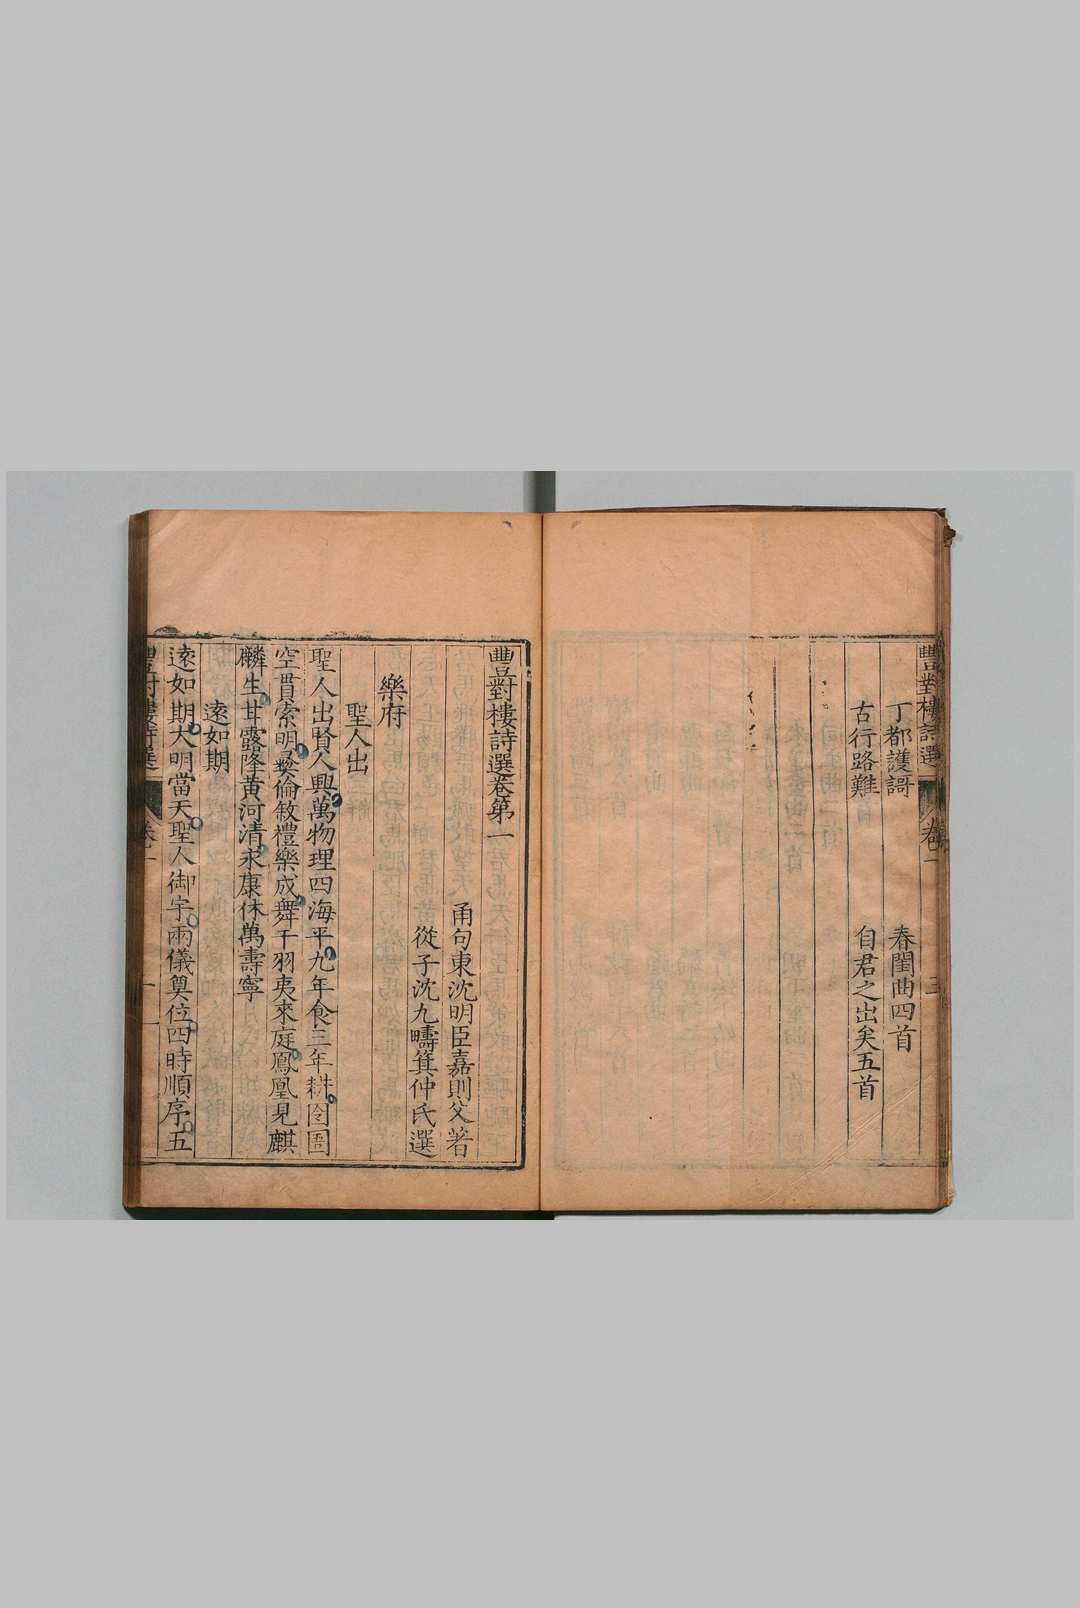 豐對樓詩選 卷一 三
丁都護謌 春閨曲四首
古行路難 自君之出矣五首
豐對樓詩選卷第一
甬句東沈明臣嘉則父著
從子沈九疇箕仲氏選
樂府
聖人出
聖人出賢人興萬物理四海平九年食三年耕囹圄
空貫索明彝倫敘禮樂成舞干羽夷來庭鳳凰見麒
麟生甘露降黃河清求康休萬壽寧
遠如期
遠如期大明當天聖人御宇兩儀奠位四時順序五
豐對樓詩選 卷一 一